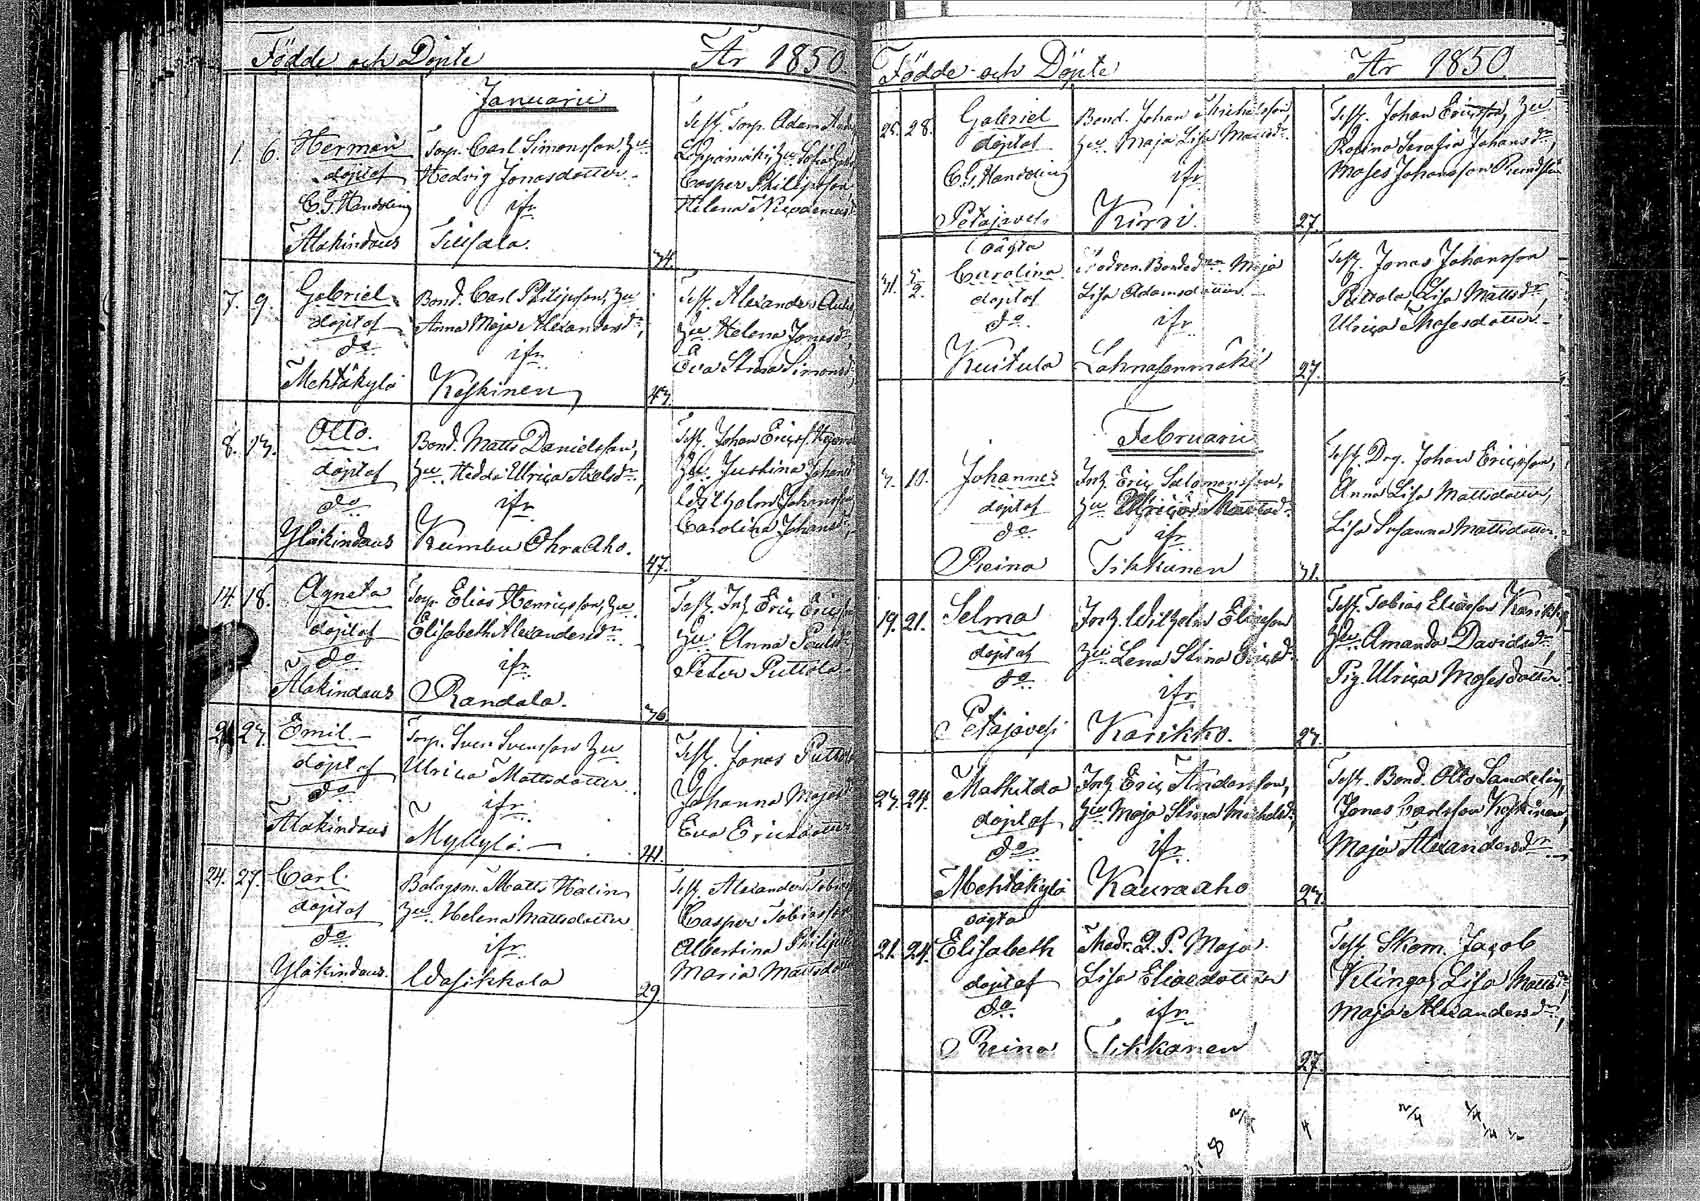 Födde och Döpte År 1850.
Januarii
1. 6. Herman
döpt af
C. G. Handding
Alakindaus
Torp. Carl Simonsson, hu
Hedvig Jonasdotter
ifr.
Sillfala.
34.
Test. Torp. Adam
Casper Philipsson
Helena
7. 9. Gabriel
döpt af
do
Mehtäkylä
Bond. Carl Philipsson, hu
Anna Maja Alexandersdr,
ifr.
Keskinen
43.
Test. Alexander
hu Helena Jonasdr
Eva Stina Simonsd
8. 13. Otto.
döpt af
do
Yläkindaus
Bond. Matts Danielsson,
hu. Hedda Ulrica Axelsdr,
ifr.
Kumbu Ohraaho.
47.
Test. Johan Ericss.
hu Justina Johansd
Wilhelm Johansson
Carolina Johansdr,
14. 18. Agneta
döpt af
do
Alakindaus
Torp. Elias Henricsson, hu
Elisabeth Alexandersdr
ifr.
Randala.
36
Test. Inh. Eric Ericsson
hu Anna
Peter Puttola
23. Emil.
döpt af
do
Alakindaus
Torp. Sven Svensson hu
Ulrica Mattsdotter
ifr.
Myllylä.
41.
Test. Jonas
Johanna
Eva Ericsdotter
24. 27. Carl.
döpt af
do
Yläkindaus.
Bolagsm. Matts Halin
hu Helena Mattsdotter
ifr.
Wasikkala
29
Test. Alexander
Casper Tobiasson
Albertina
Maria Mattsd
Födde och Döpte År 1850
25. 28. Gabriel
döpt af
C. G. Handding
Petäjäves
Bond. Johan Michelsson,
hu Maja Lisa Mattsdr.
ifr
Kirri.
27.
Test. Johan Ericsson, hu
Rosina Serafia Johansdr
Moses Johansson
oägta
31. 5/2 Carolina
döpt af
do.
Kuitula
Bondedn Maja
Lisa Adamsdotter
ifr
Lahnasenmäki
27.
Test. Jonas Johansson
Puttola, Lisa Mattsdr
Ulrica Mosesdotter
Februarii
3. 10. Johannes
döpt af
do.
Reino
Inh. Eric Salomonsson,
hu Ulrica
ifr
Tikkanen
31.
Test. Drg. Johan Ericsson,
Anna Lisa Mattsdotter,
Lisa Susanna Mattsdotter.
19. 21. Selma
döpt af
do
Petäjäves
Inh. Wilhelm Eliasson
hu Lena Stina Ericsdr
ifr
Karikko.
23.
Test. Tobias Eliasson Karikko
hu Amanda Davidsdr,
Pig. Ulrica Mosesdotter.
23. 24. Mathilda
döpt af
do
Mehtäkylä
Inh. Eric Andersson,
hu Maja Stina Michelsdr,
ifr.
Kauraaho
23.
Test. Bond. Otto Sandelin,
Jonas Carlsson Keskinen,
Maja Alexandersdr
oägta
21. 24. Elisabeth
döpt af
do.
Reino
Maja
Lisa Eliaedotter
ifr
Tikkanen
27.
Test. Skom. Jacob
Klinga, Lisa Mattsdr
Maja Alexandersdr,